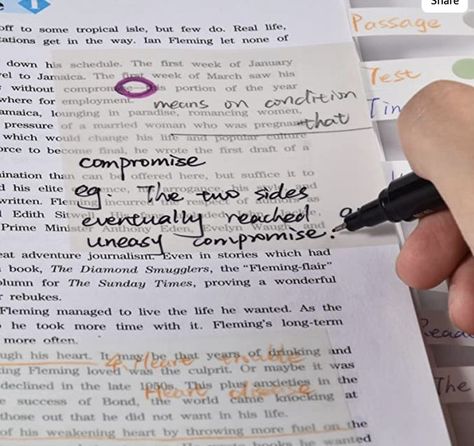 Share
off to some tropical isle, but few do. Real life,
tations get in the way. Ian Fleming let none of
Passage
down his schedule. The first week of January
vel to Jamaica. The first week of March saw his
Test
without compromise this portion of the year
where for employment.
means on condition
amaica, lounging in paradise, romancing women,
that
pressure of a married woman who was pregnant
which would change his life and popular culture
orce to become final, he wrote the first draft of a
compromise
ination than can be offered here, but suffice it to
eg: The two sides
eventually reached
uneasy compromise.
Prime Minister Anthony Eden, Evelyn Waugh, and
eat adventure journalism. Even in stories which had
book, The Diamond Smugglers, the "Fleming-flair"
olumn for The Sunday Times, proving a wonderful
r rebukes.
Fleming managed to live the life he wanted. As the
he took more time with it. Fleming's long-term
more often.
ugh his heart. It may be that years of drinking and
ing Fleming loved was the culprit. Or maybe it was
declined in the late 1950s. This plus anxieties in the
Heart disease
e success of Bond, the world came knocking at
those out that he did not want in his life.
of his weakening heart by throwing more fuel on the
books he wanted
The